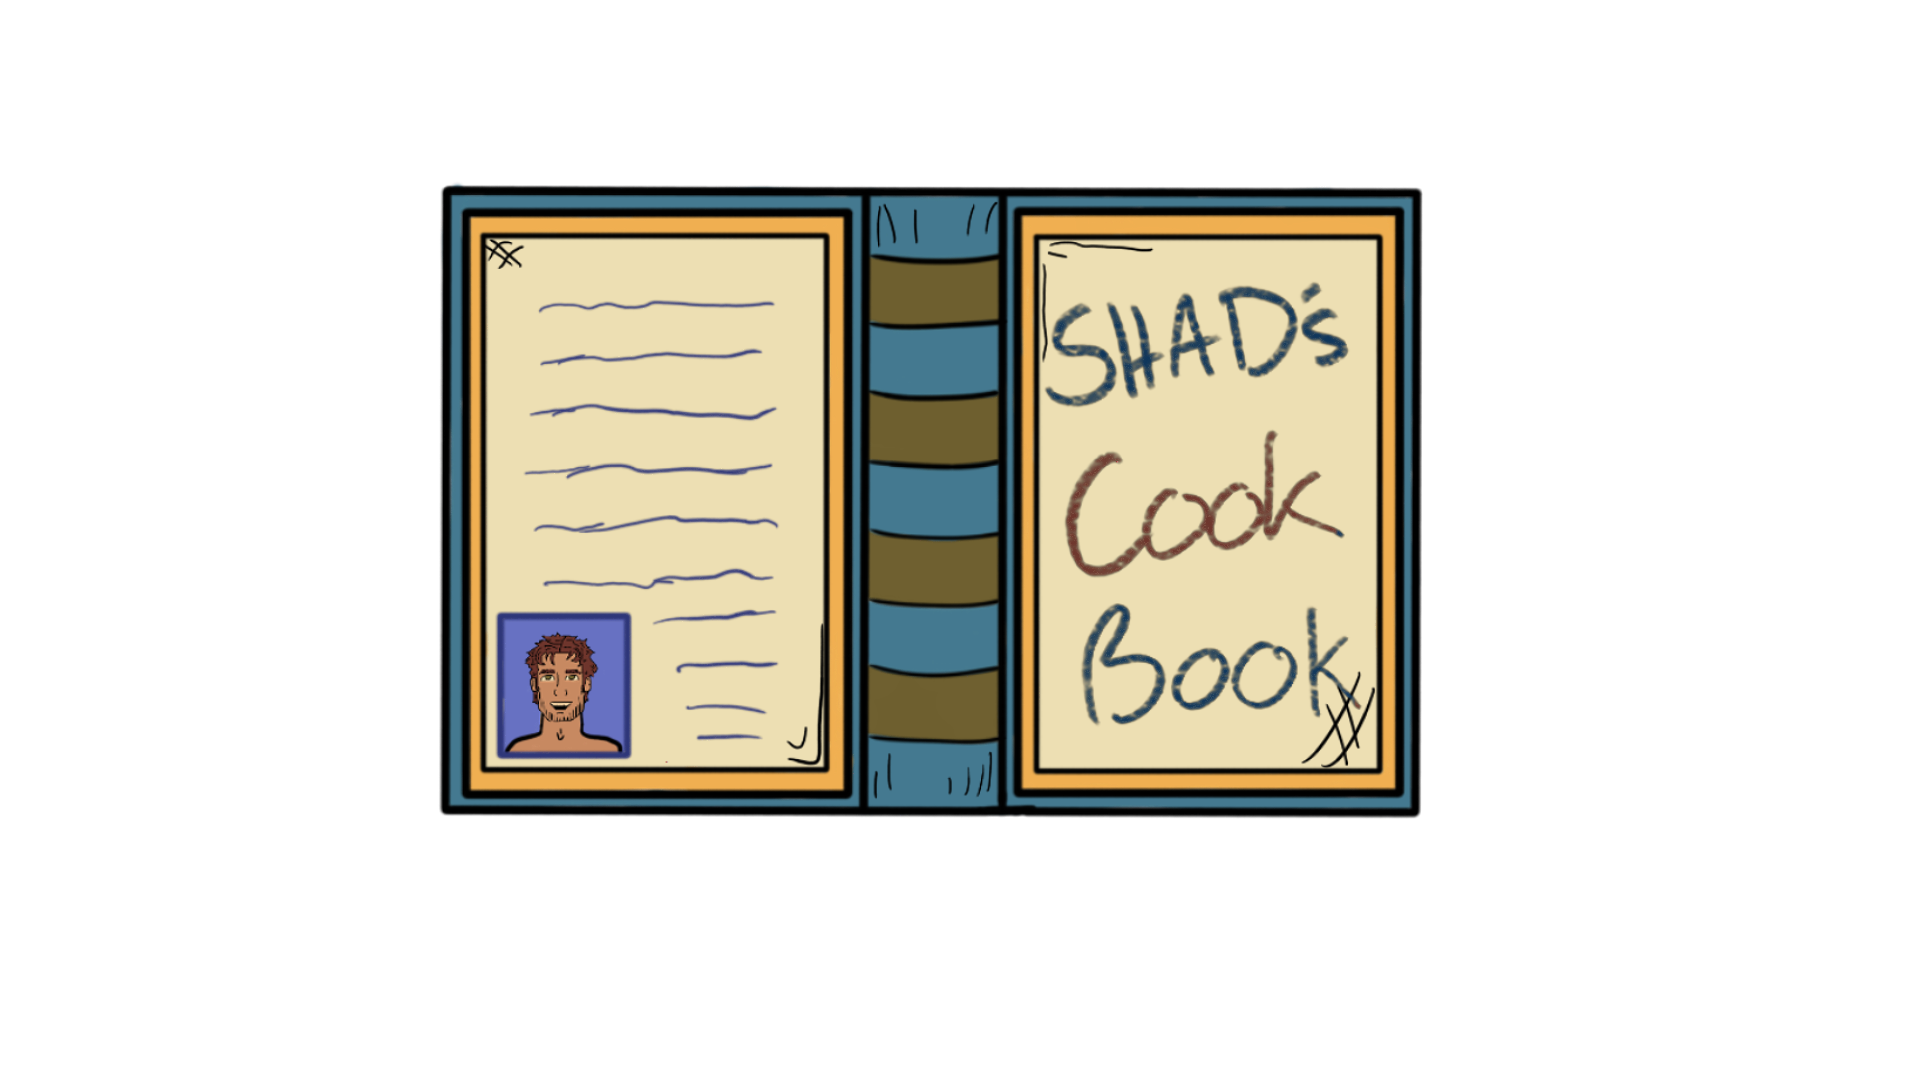 SHAD's
Cook
Book